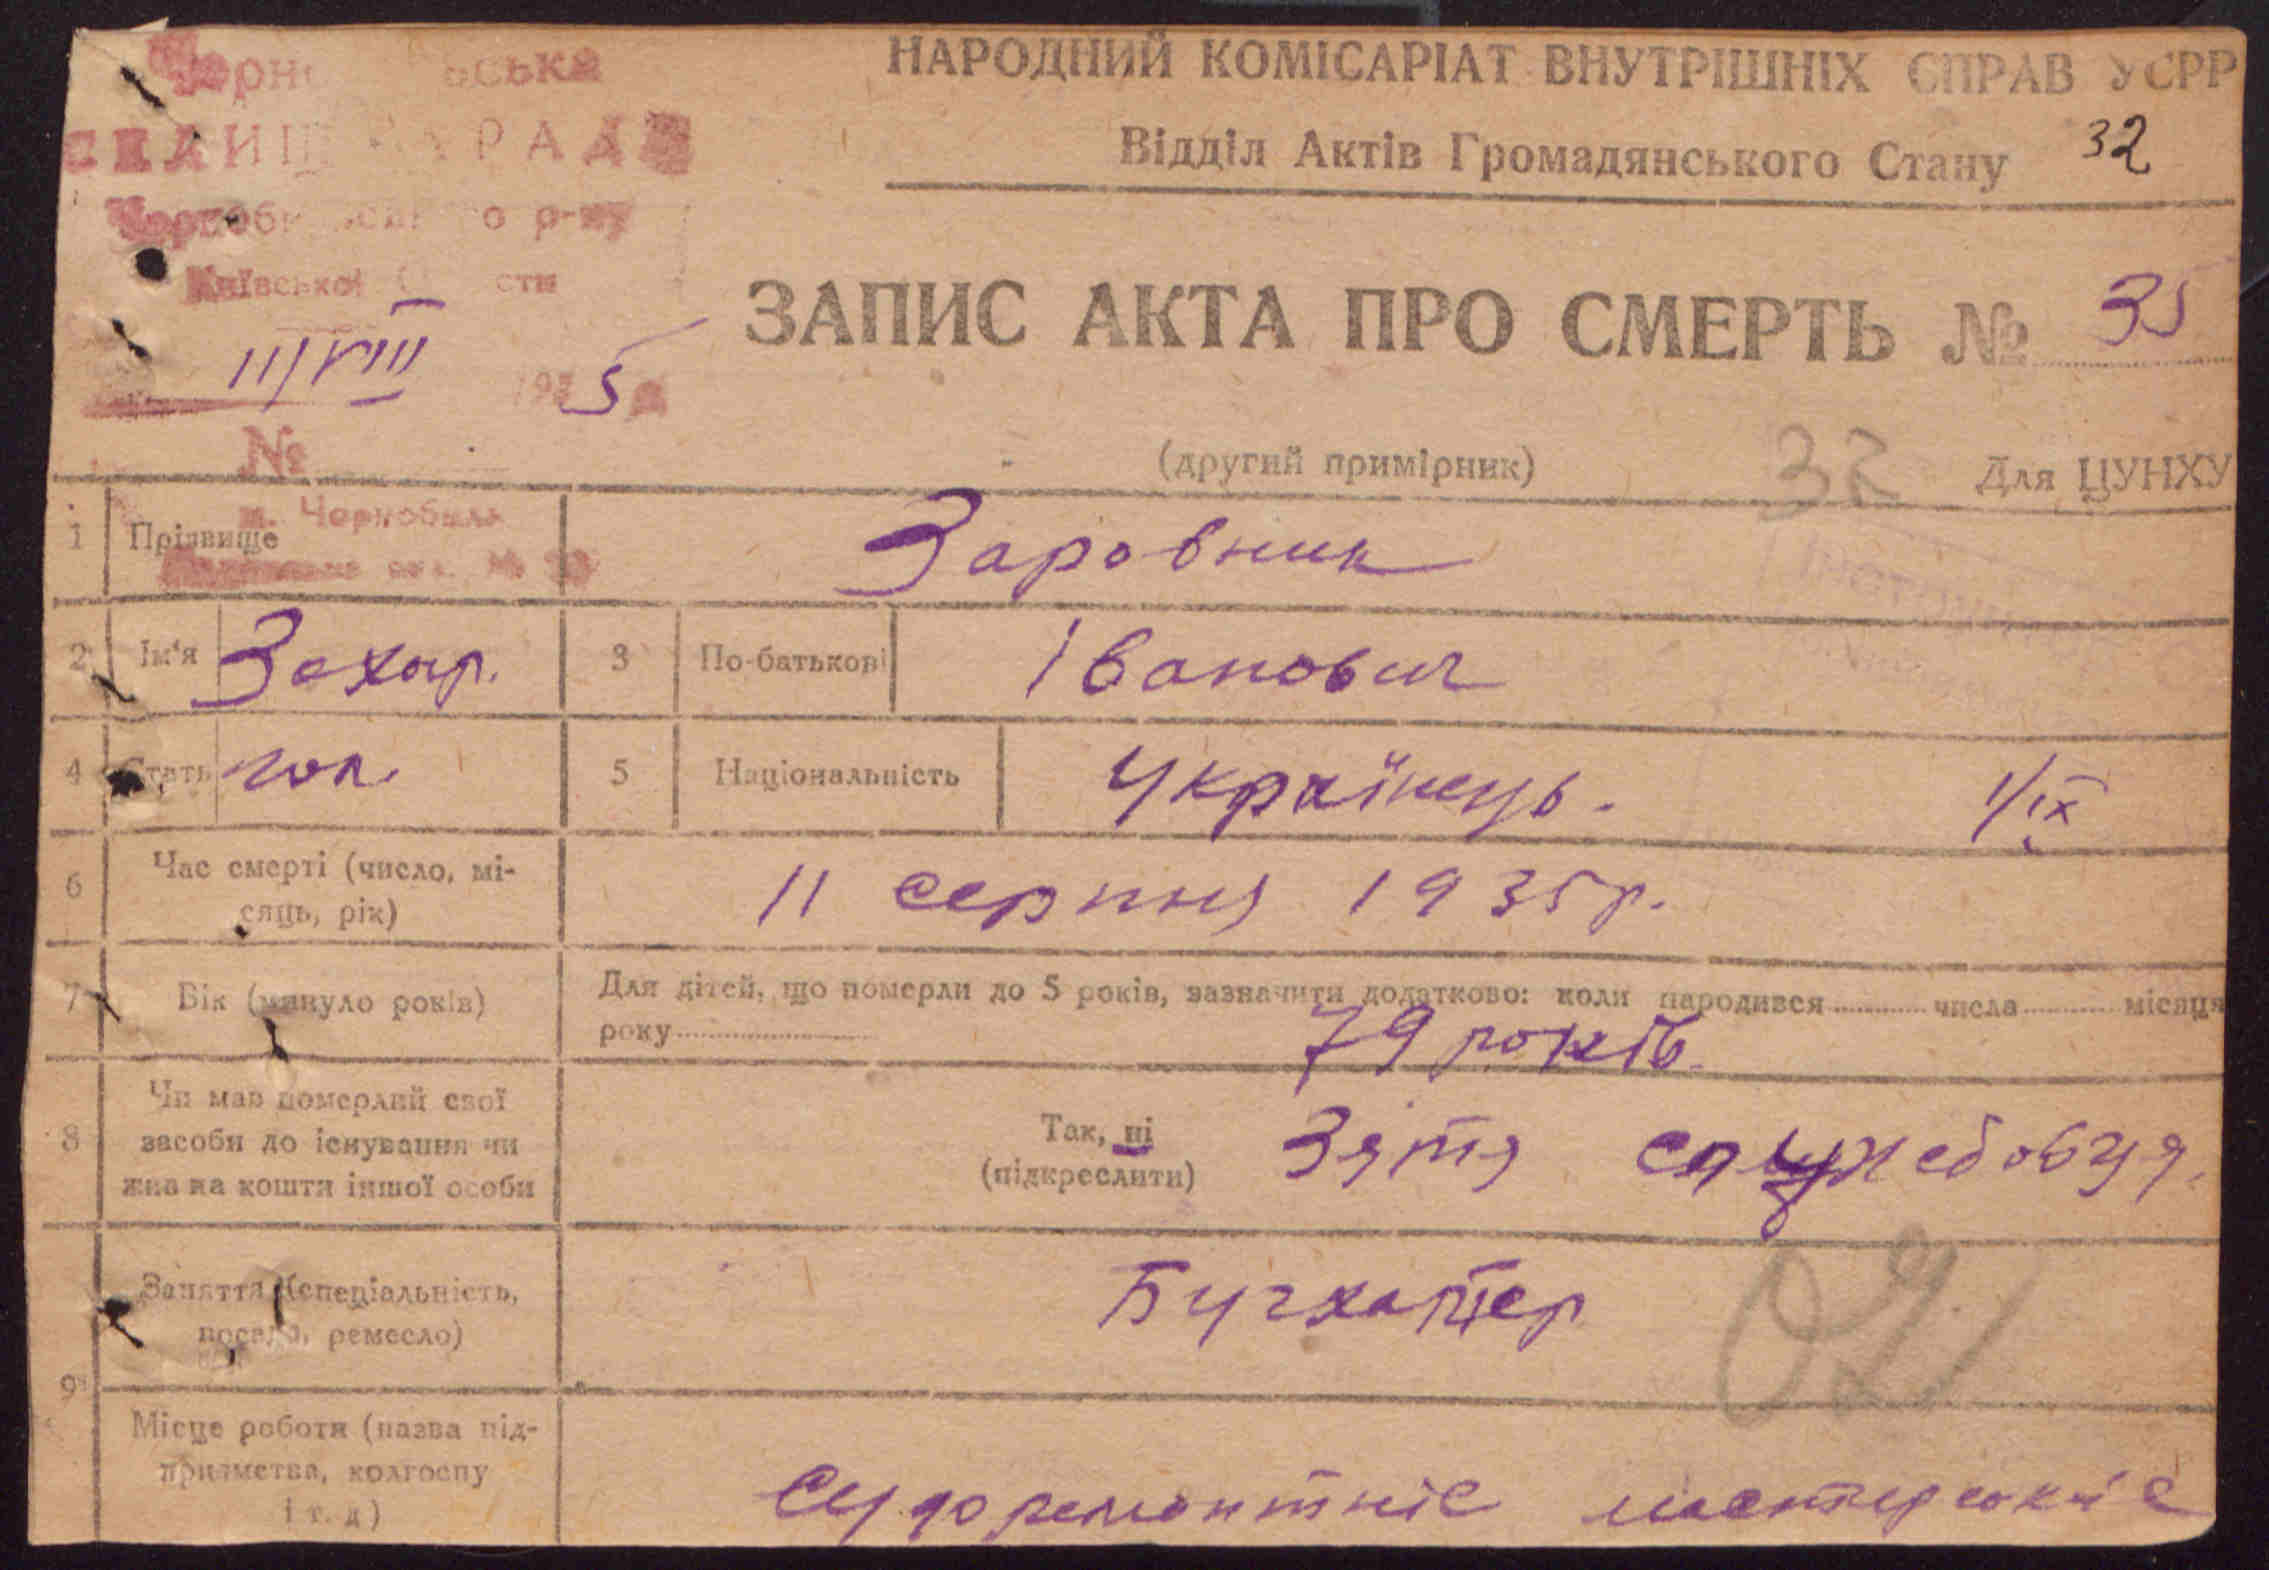 НАРОДНИЙ КОМІСАРІАТ ВНУТРІШНІХ СПРАВ УСРР
Відділ Актів Громадянського Стану 32
РАДА
р-ну
Київської
11/VIII 1935
ЗАПИС АКТА ПРО СМЕРТЬ № 35
№
(другий примірник) 32 Для ЦУНХУ
м. Чорнобиль
1 Прізвище Заровник
2 Ім'я Захар. 3 По-батькові Іванович
4 Стать чол. 5 Національність Українець. 1/IX
6 Час смерті (число, мі-
сяць, рік) 11 серпня 1935р.
7 Вік (минуло років) Для дітей, що померли до 5 років, зазначити додатково: коли народився числа місяця
року 79 років.
8 Чи мав померлий свої
засоби до існування чи
жив на кошти іншої особи
Так, ні
(підкреслити) Зятя службовця.
9 Заняття (спеціальність,
посада, ремесло) Бугхалтер
Місце роботи (назва під-
приємства, колгоспу
і т. д)
Судоремонтніє мастерскіє